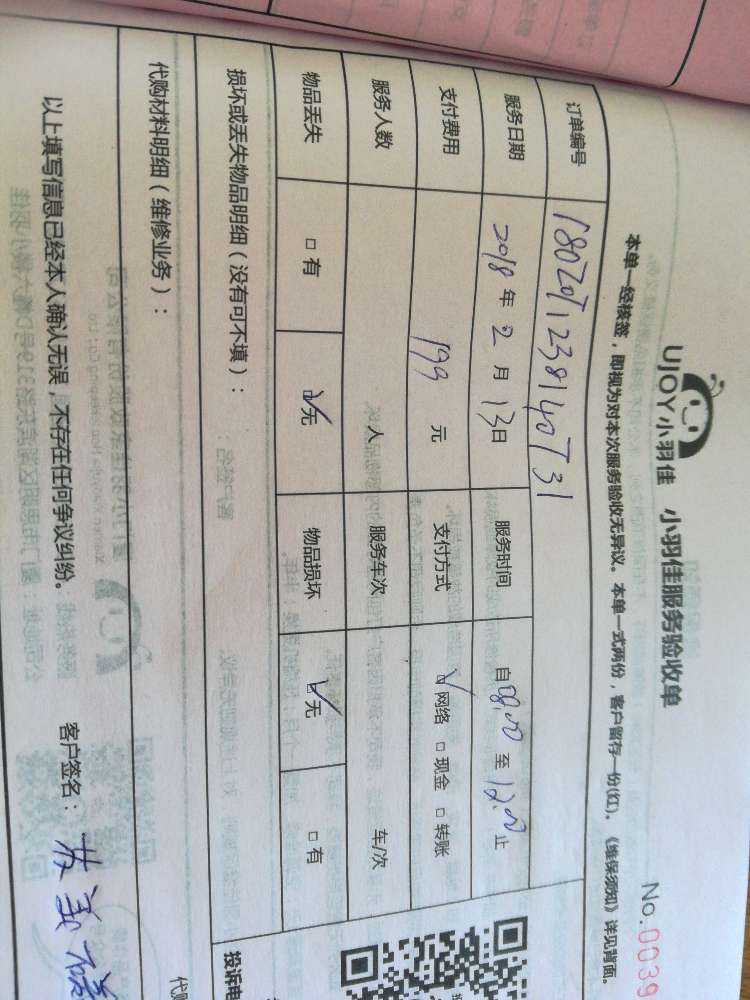 UJOY小羽佳 小羽佳服务验收单
No.0039
本单一经核签，即视为对本次服务验收无异议。本单一式两份，客户留存一份(红)。《维保须知》详见背面。
订单编号 180201238140T31
服务日期 2018年2月13日 服务时间 自08:00至12:00止
支付费用 199元 支付方式 ☑网络 □现金 □转账
服务人数 人 服务车次 车/次
物品丢失 □有 ☑无 物品损坏 ☑无 □有
损坏或丢失物品明细（没有可不填）：
投诉电
代购材料明细（维修业务）：
代购
以上填写信息已经本人确认无误，不存在任何争议纠纷。 客户签名：